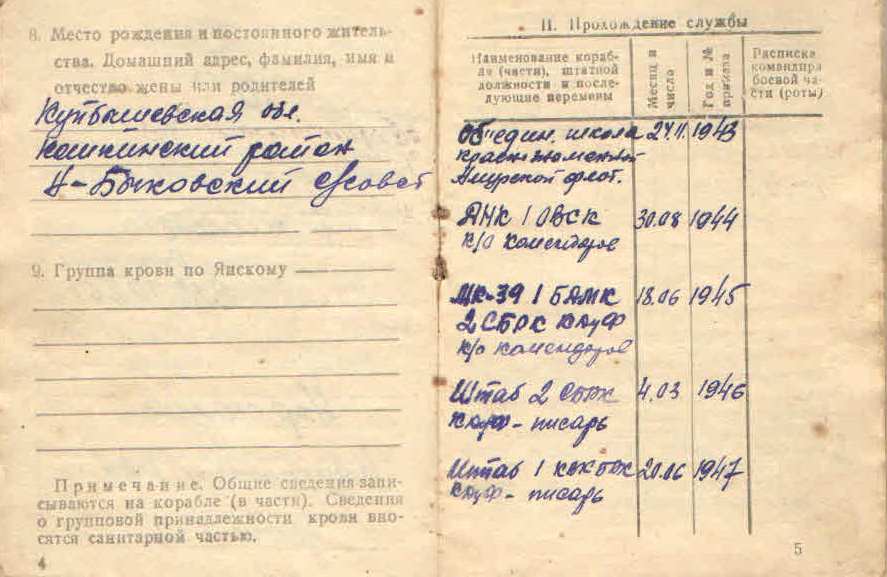 8. Место рождения и постоянного житель-
ства. Домашний адрес, фамилия, имя и
отчество жены или родителей
Куйбышевская обл.
Кошкинский район
Н-Быковский с/совет
9. Группа крови по Янскому
Примечание. Общие сведения запи-
сываются на корабле (в части). Сведения
о групповой принадлежности крови вно-
сятся санитарной частью.
4
II. Прохождение службы
Наименование кораб-
ля (части), штатной
должности и после-
дующие перемены
Месяц и
число
Год и №
приказа
Расписка
командира
боевой ча-
сти (роты)
Объедин. школа 27.11. 1943
Краснознаменной
Амурской флот.
1 ОВСК 30.08 1944
к/о комендоров
МК-39 1 БАМК 18.06 1945
2 СБРК КАуФ
к/о комендоров
Штаб 2 4.03 1946
КАуФ - писарь
Штаб 1 20.06 1947
КАуФ - писарь
5